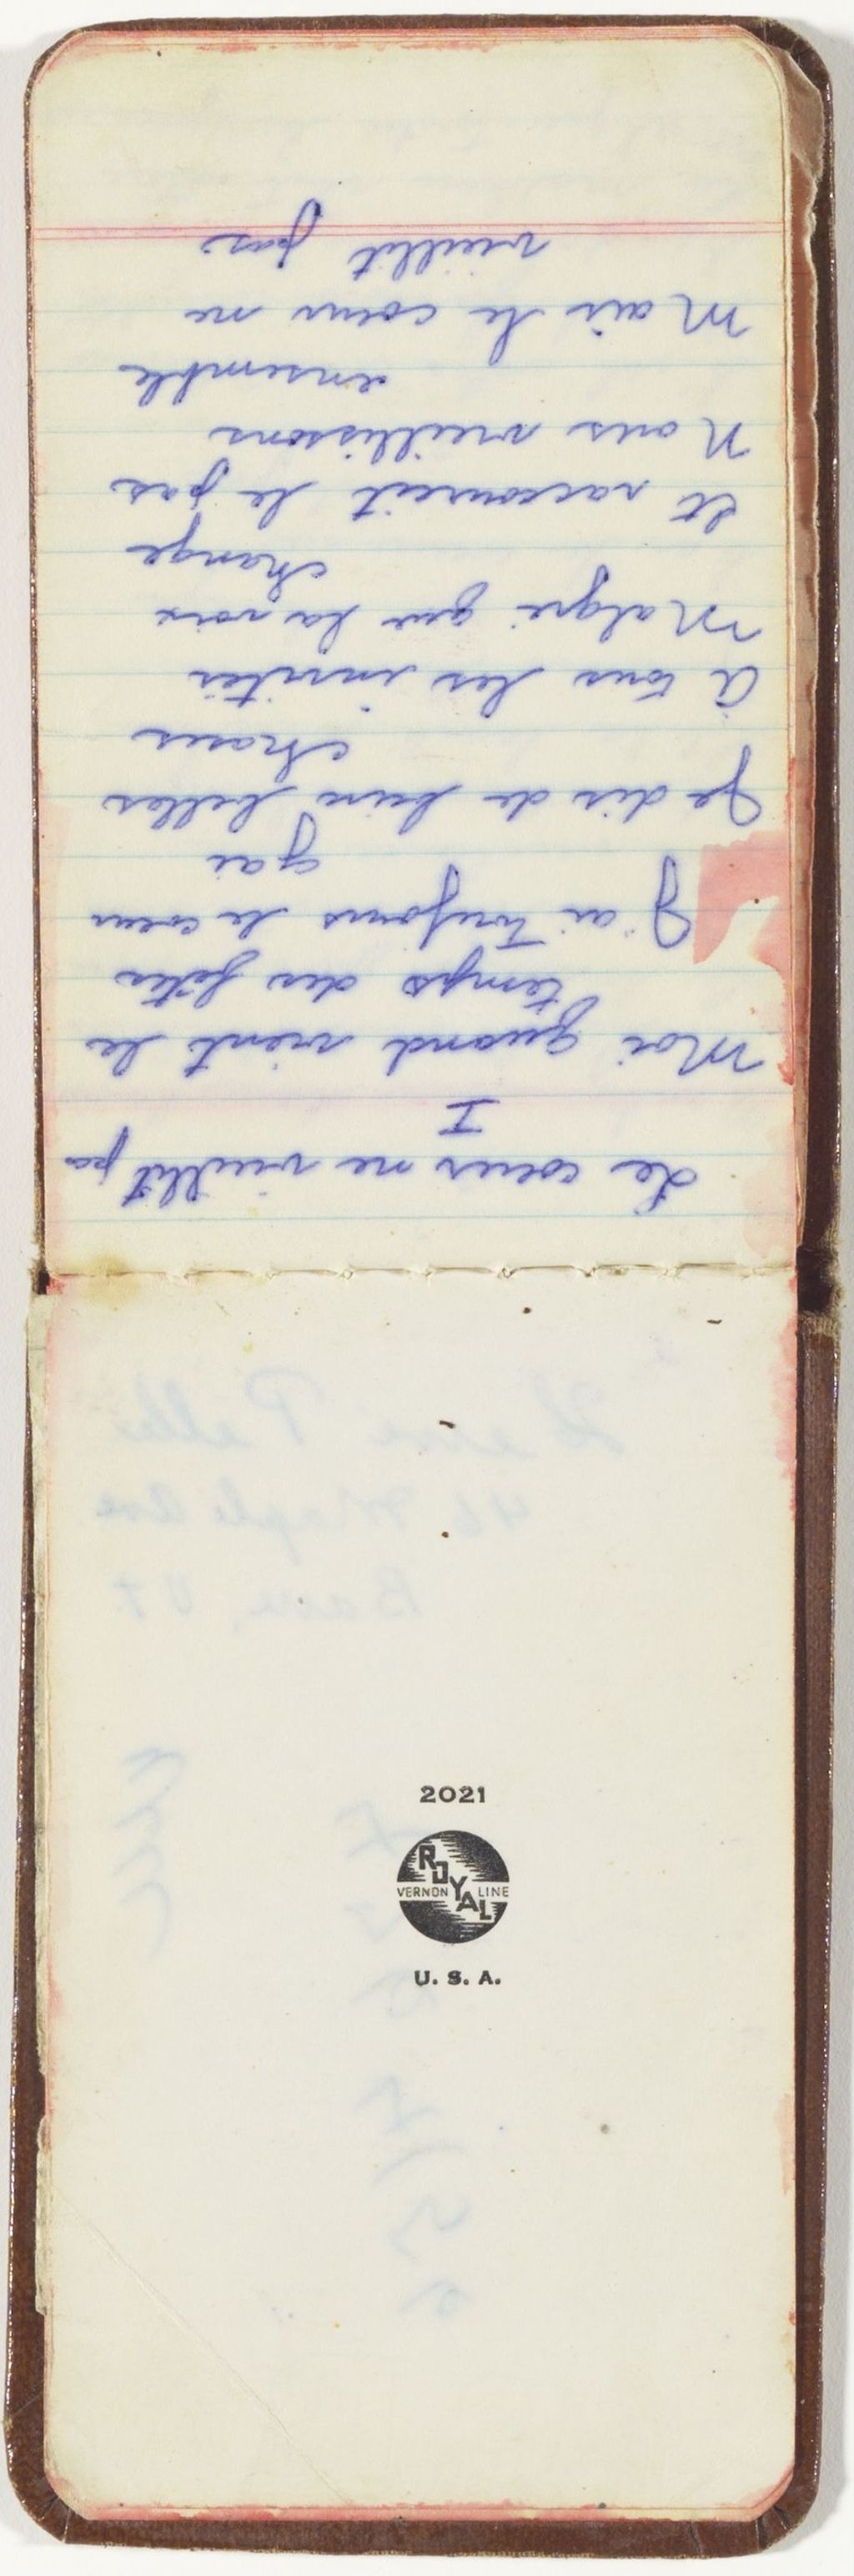 Le coeur ne vieillit pa
I
Moi quand vient le
temps des fêtes
J'ai toujours le coeur
gai
Je dis de bien belles
choses
à tous les invités
Malgré que la voix
change
et raccourcit le pas
Nous vieillissons
ensemble
Mais le coeur ne
vieillit pas
2021
ROYAL
VERNON LINE
U. S. A.